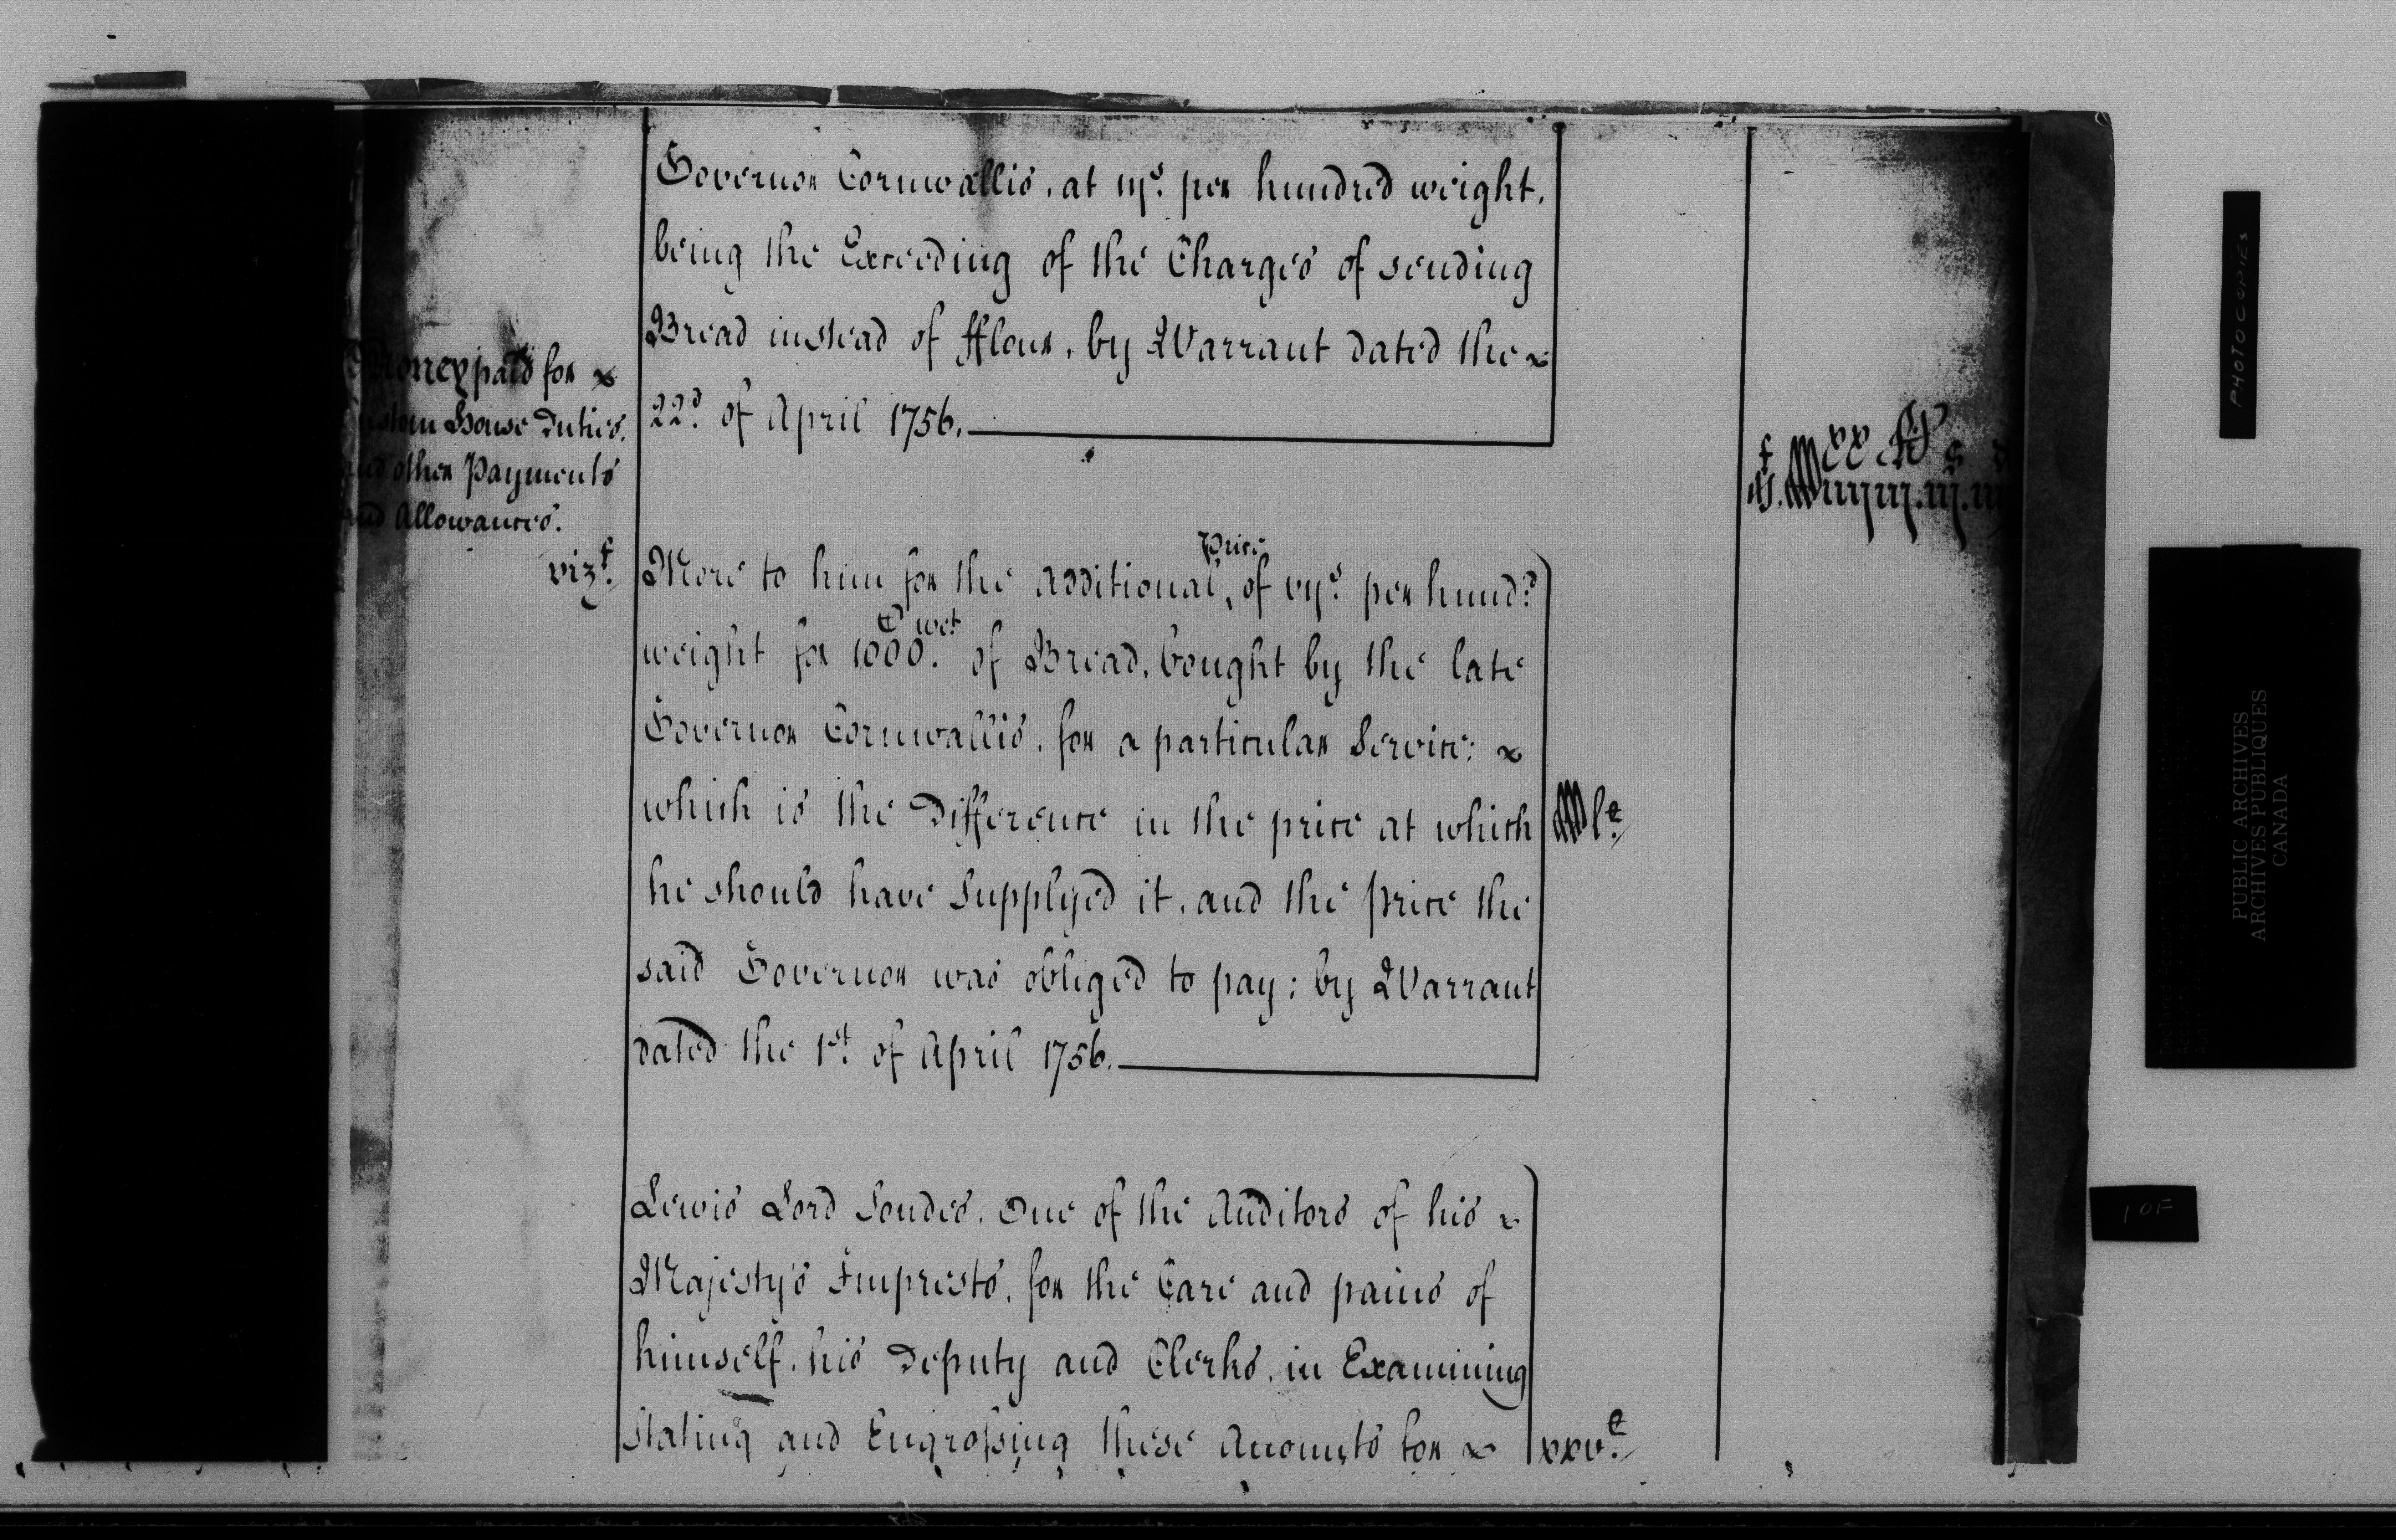 Governor Cornwallis, at iijs. per hundred weight,
being the Exceeding of the Charges of sending
Bread instead of fflour, by Warrant dated the
22d. of April 1756.
Money paid for
ustom House Duties,
and other Payments
and Allowances.
vizt.
More to him for the additional, Price of vijs. per hund.d
weight for 1000. C wt. of Bread, bought by the late
Governor Cornwallis, for a particular Service;
which is the Difference in the price at which
he should have Supplyed it, and the price the
said Governor was obliged to pay; by Warrant
dated the 1st. of April 1756.
Lewis Lord Sondes, One of the Auditors of his
Majesty's Imprests, for the Care and pains of
himself, his Deputy and Clerks, in Examining
Stating and Engrossing these Accompts for
xxv.
PHOTOCOPIES
PUBLIC ARCHIVES
ARCHIVES PUBLIQUES
CANADA
1 OF